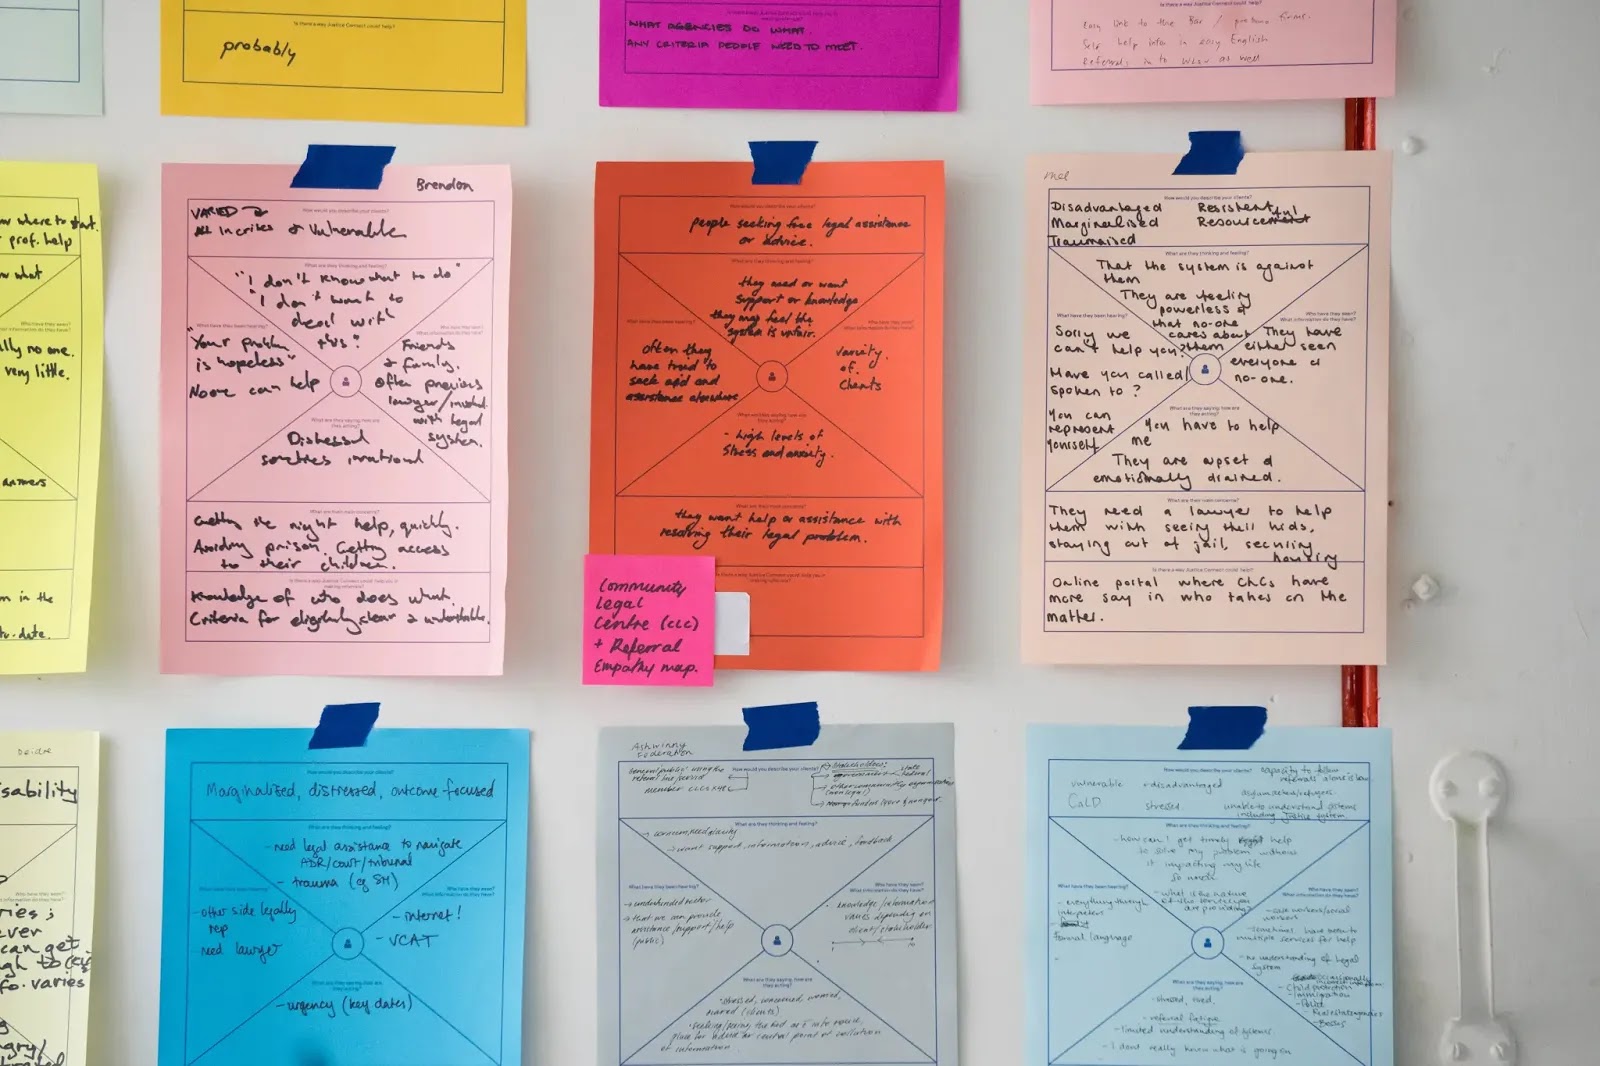 Is there a way Justice Connect could help?
probably
WHAT AGENCIES DO WHAT.
ANY CRITERIA PEOPLE NEED TO MEET.
Easy link to the Bar / probono firms.
Self help info in easy English
Referrals in to when as well
where to start.
prof. help
what
lly no one.
very little.
answers
m in the
to-date.
Brendon
How would you describe your clients?
VARED
All in crises & vulnerable
What are they thinking and feeling?
"I don't know what to do"
"I don't want to
deal with
this"
What have they been hearing?
"Your problem
is hopeless"
No one can help
Who have they seen?
What information do they have?
Friends
& family.
Often previous
lawyer/
with legal
system.
What are they saying, how are
they acting?
Distressed
sometimes irrational
What are their main concerns?
Getting the right help, quickly.
Avoiding prison. Getting access
to their children.
Is there a way Justice Connect could help you in
making referrals?
Knowledge of who does what.
Criteria for eligibility clear & understandable.
How would you describe your clients?
people seeking free legal assistance
or advice.
What are they thinking and feeling?
they need or want
support or knowledge
they may feel the
system is unfair.
What have they been hearing?
often they
have tried to
seek aid and
assistance elsewhere
Who have they seen?
What information do they have?
variety
of
clients
What are they saying, how are
they acting?
- high levels of
stress and anxiety.
What are their main concerns?
they want help or assistance with
resolving their legal problem.
Is there a way Justice Connect could help you in
making referrals?
Community
Legal
Centre (CLC)
+ Referral
Empathy map.
Mel
How would you describe your clients?
Disadvantaged Resistent
Marginalised Resourceful
Traumatised
What are they thinking and feeling?
That the system is against
them
They are feeling
powerless &
that no-one
cares about
them
What have they been hearing?
Sorry we
can't help you.
Have you called/
spoken to?
You can
represent
yourself
Who have they seen?
What information do they have?
They have
either seen
everyone or
no-one.
What are they saying, how are
they acting?
You have to help
me
They are upset &
emotionally drained.
What are their main concerns?
They need a lawyer to help
them with seeing their kids,
staying out of jail, securing
housing
Is there a way Justice Connect could help you in
making referrals?
Online portal where CLCs have
more say in who takes on the
matter.
Deidre
sability
ries;
ever
can get
gh to
fo. varies
ngry/
How would you describe your clients?
Marginalised, distressed, outcome-focused
What are they thinking and feeling?
- need legal assistance to navigate
ADR/court/tribunal
- trauma (eg SH)
What have they been hearing?
- other side legally
rep
- need lawyer
Who have they seen?
What information do they have?
- internet!
- VCAT
What are they saying, how are
they acting?
- urgency (key dates)
Ashwinny
Federation
How would you describe your clients?
general public using the
referral line/service
member CLCs x48
Stakeholders:
government
state
federal
other community organisations
(non legal)
What are they thinking and feeling?
concern, need clarity
want support, information, advice, feedback
What have they been hearing?
underfunded sector
that we can provide
assistance/support/help
(public)
Who have they seen?
What information do they have?
knowledge/information
varies depending on
client/stakeholder
What are they saying, how are
they acting?
stressed, concerned, worried,
(clients)
central point of collation
of information
How would you describe your clients?
capacity to follow
referrals alone is low
vulnerable + disadvantaged
asylum seekers/refugees
CaLD stressed
unable to understand systems
including Justice system
What are they thinking and feeling?
- how can I get timely help
to solve my problem without
it impacting my life
so much
- what is the nature
of the service you
are providing?
What have they been hearing?
- everything through
interpreters
formal language
Who have they seen?
What information do they have?
- case workers/social
workers
- sometimes have been to
multiple services for help
- no understanding of legal
system
- child protection
- Immigration
- Police
- Real estate agencies
- Bosses
What are they saying, how are
they acting?
- stressed, tired,
- referral fatigue
- limited understanding of systems
- I dont really know what is going on